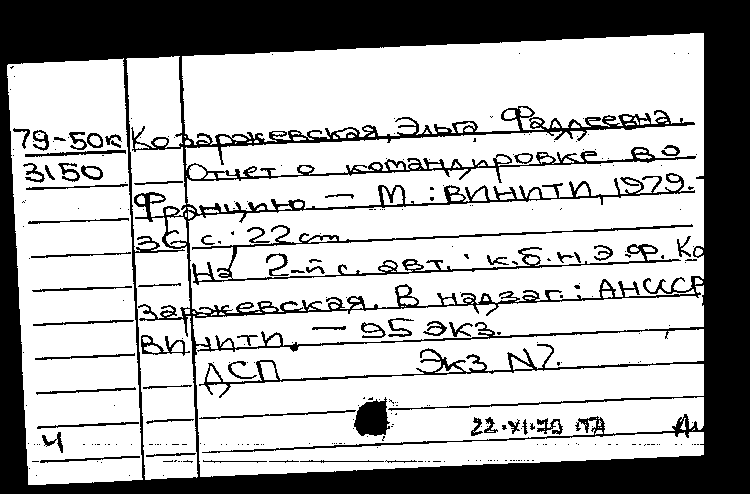 79-50к Козаржевская, Эльга Фаддеевна.
3150 Отчет о командировке во
Францию. — М. : ВИНИТИ, 1979. -
36 с. ; 22 см.
На 2-й с. авт. : к.б.н. Э.Ф. Ко
заржевская. В надзаг. : АНСССР,
ВИНИТИ. — 95 экз.
ДСП Экз №7.
4 22.XI.79